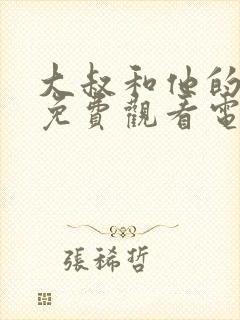 大叔和他的
免費觀看電
張稀哲